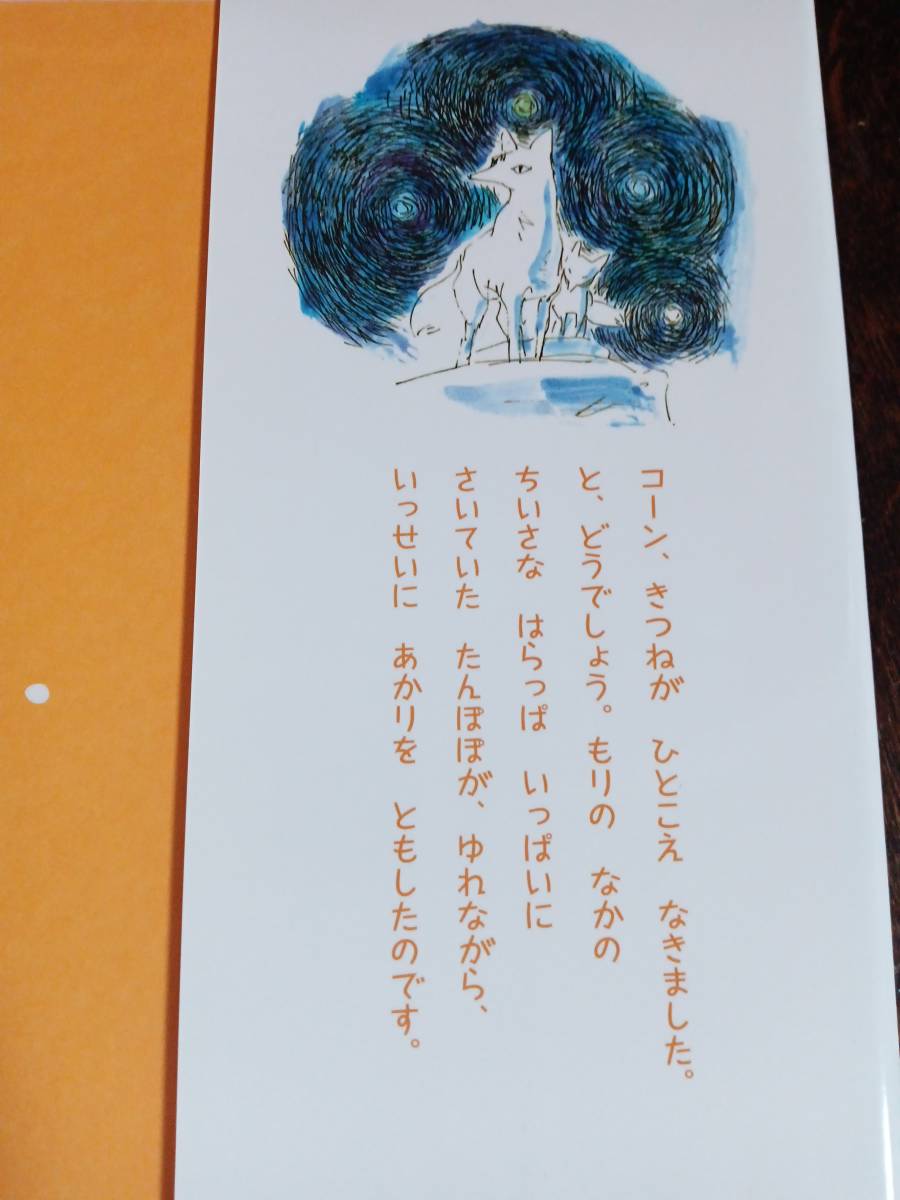 コーン、きつねが　ひとこえ　なきました。
と、どうでしょう。もりの　なかの
ちいさな　はらっぱ　いっぱいに
さいていた　たんぽぽが、ゆれながら、
いっせいに　あかりを　ともしたのです。